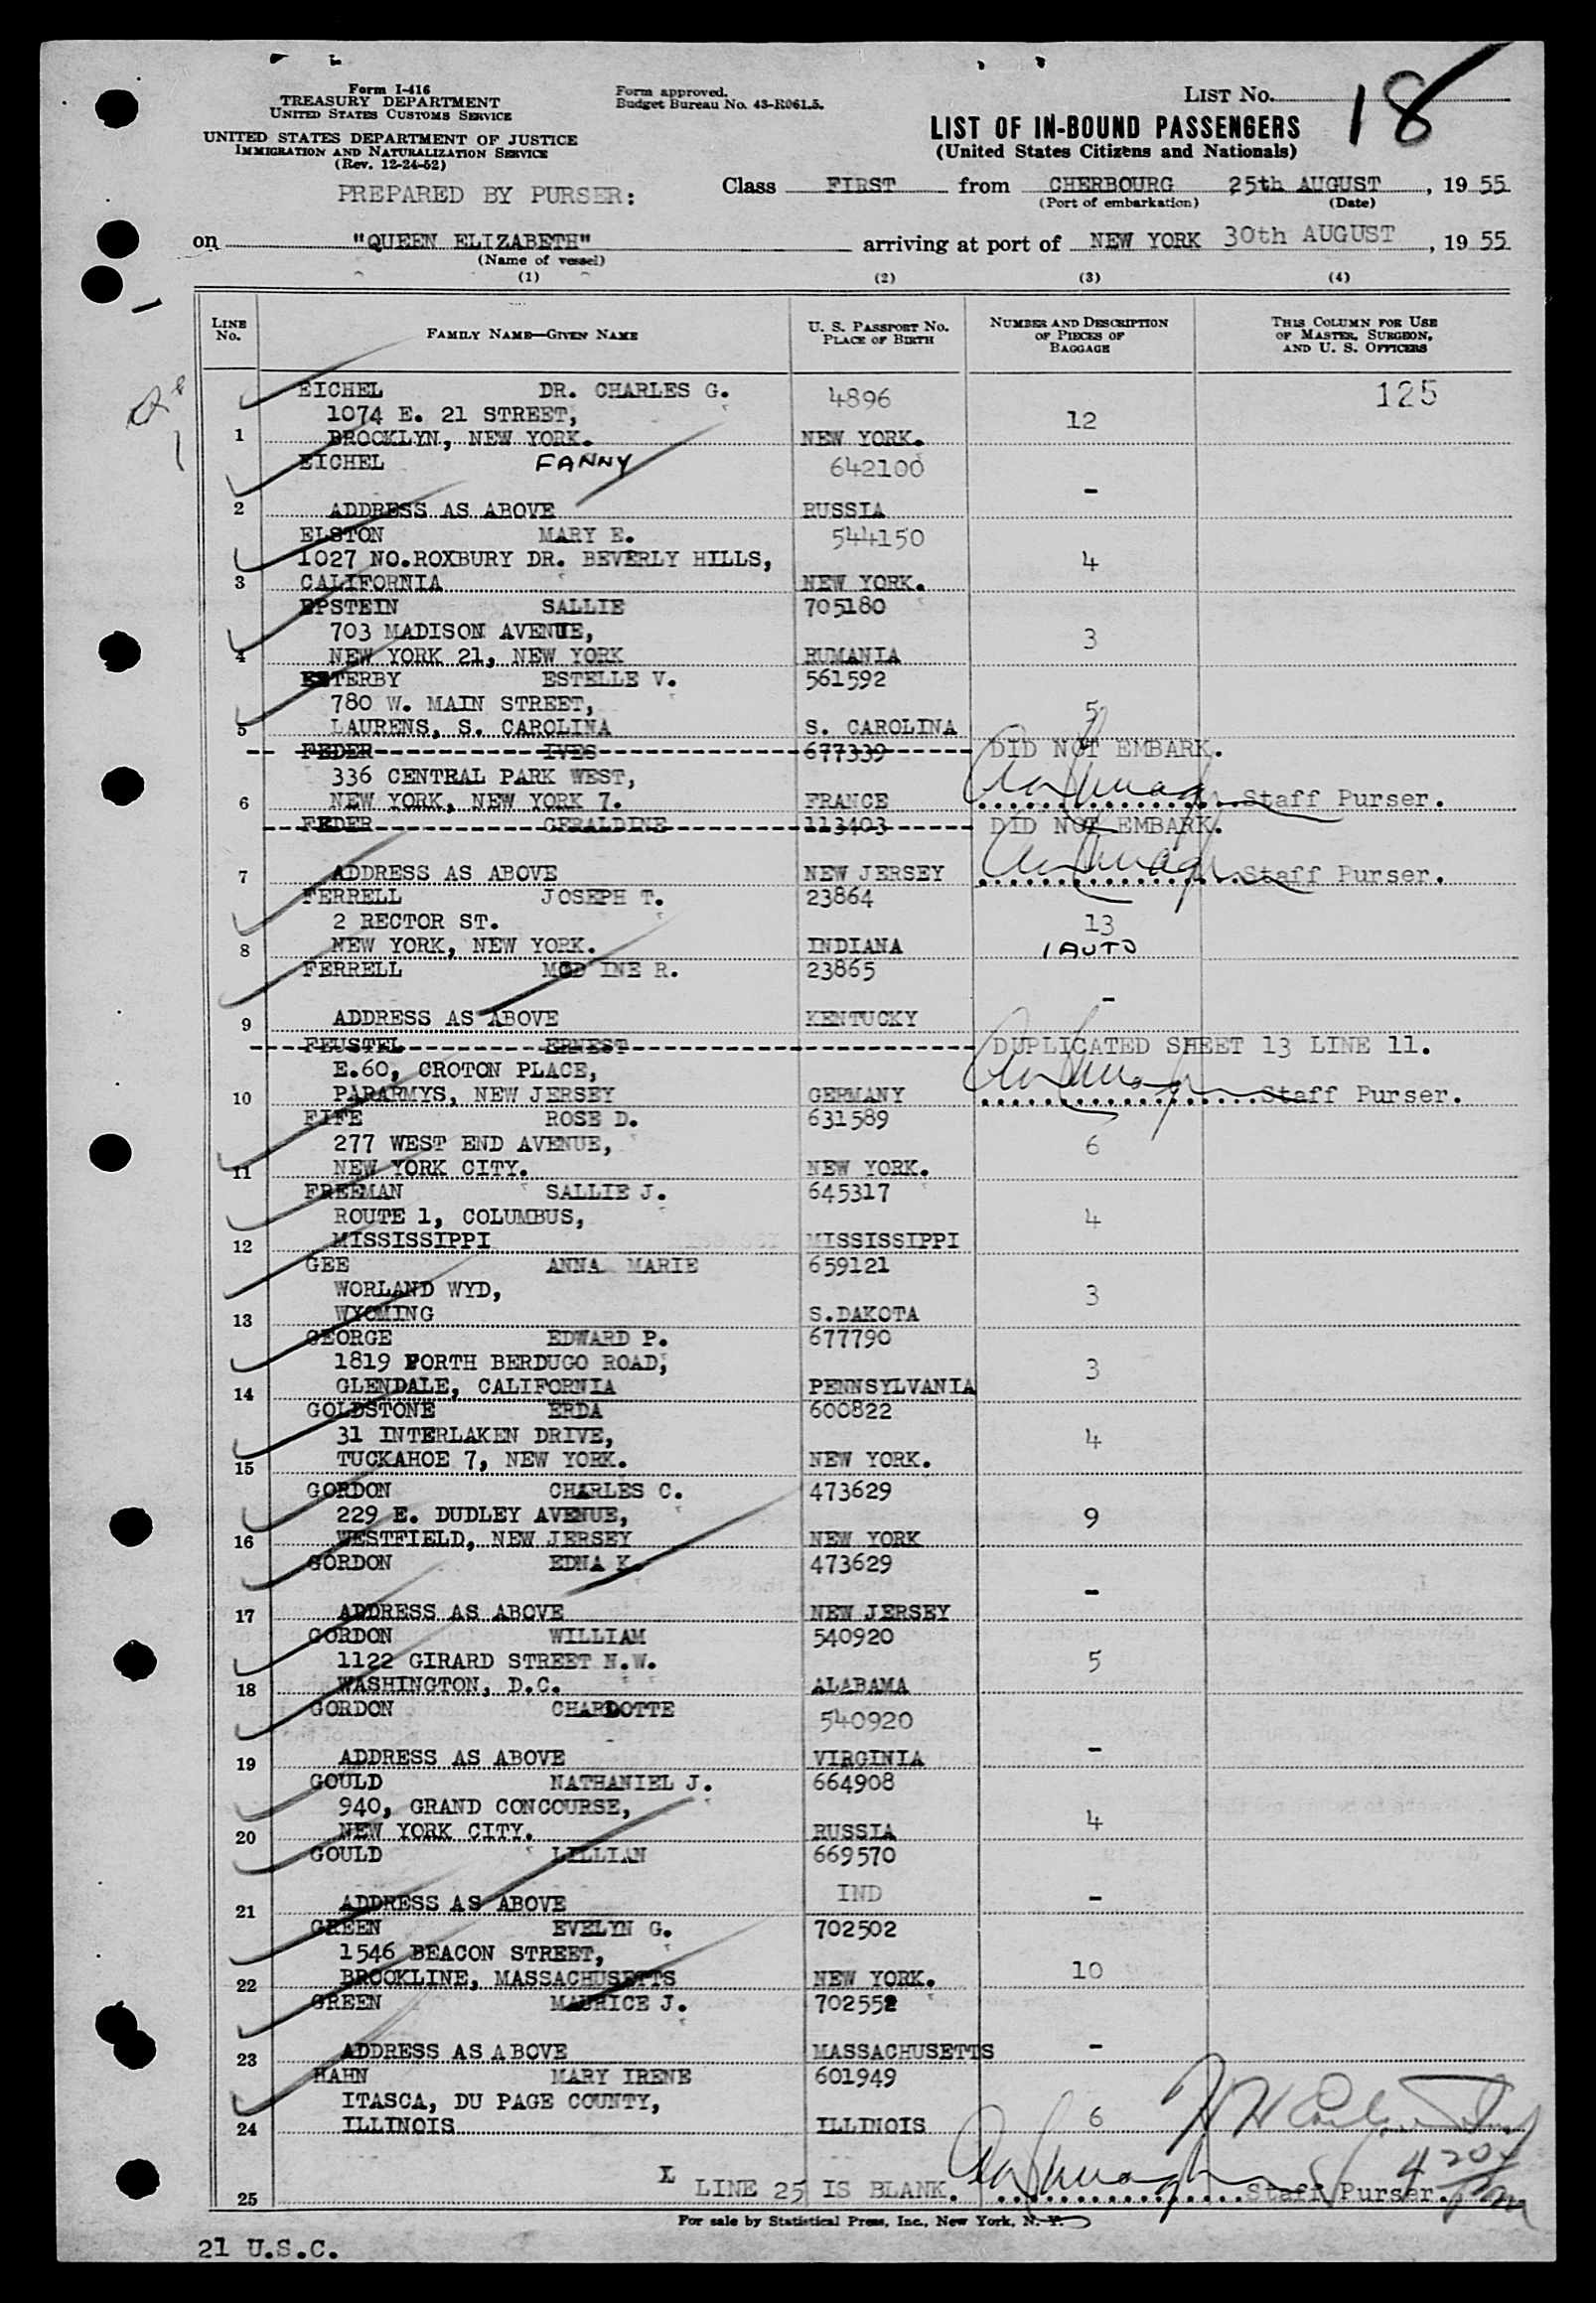 Form I-416
TREASURY DEPARTMENT
UNITED STATES CUSTOMS SERVICE
UNITED STATES DEPARTMENT OF JUSTICE
IMMIGRATION AND NATURALIZATION SERVICE
(Rev. 12-24-52)
Form approved.
Budget Bureau No. 43-R061.5.
LIST No. 18
LIST OF IN-BOUND PASSENGERS
(United States Citizens and Nationals)
PREPARED BY PURSER:
Class FIRST from CHERBOURG 25th AUGUST, 19 55
(Port of embarkation) (Date)
on "QUEEN ELIZABETH" arriving at port of NEW YORK 30th AUGUST, 19 55
(Name of vessel)
(1) (2) (3) (4)
LINE No. FAMILY NAME—GIVEN NAME U. S. PASSPORT NO. PLACE OF BIRTH NUMBER AND DESCRIPTION OF PIECES OF BAGGAGE THIS COLUMN FOR USE OF MASTER, SURGEON, AND U. S. OFFICERS
EICHEL DR. CHARLES G. 4896 125
1074 E. 21 STREET, 12
1 BROOKLYN, NEW YORK. NEW YORK.
EICHEL FANNY 642100
-
2 ADDRESS AS ABOVE RUSSIA
ELSTON MARY E. 544150
1027 NO.ROXBURY DR. BEVERLY HILLS, 4
3 CALIFORNIA NEW YORK.
EPSTEIN SALLIE 705180
703 MADISON AVENUE, 3
4 NEW YORK 21, NEW YORK RUMANIA
ESTERBY ESTELLE V. 561592
780 W. MAIN STREET, 5
5 LAURENS, S. CAROLINA S. CAROLINA
FEDER IVES 677339 DID NOT EMBARK.
336 CENTRAL PARK WEST,
6 NEW YORK, NEW YORK 7. FRANCE Staff Purser.
FEDER GERALDINE 113403 DID NOT EMBARK.
7 ADDRESS AS ABOVE NEW JERSEY Staff Purser.
FERRELL JOSEPH T. 23864
2 RECTOR ST. 13
8 NEW YORK, NEW YORK. INDIANA 1 AUTO
FERRELL INE R. 23865
-
9 ADDRESS AS ABOVE KENTUCKY
FEUSTEL ERNEST DUPLICATED SHEET 13 LINE 11.
E.60, CROTON PLACE,
10 PARARMYS, NEW JERSEY GERMANY Staff Purser.
FIFE ROSE D. 631589
277 WEST END AVENUE, 6
11 NEW YORK CITY. NEW YORK.
FREEMAN SALLIE J. 645317
ROUTE 1, COLUMBUS, 4
12 MISSISSIPPI MISSISSIPPI
GEE ANNA MARIE 659121
WORLAND WYD, 3
13 WYOMING S.DAKOTA
GEORGE EDWARD P. 677790
1819 FORTH BERDUGO ROAD, 3
14 GLENDALE, CALIFORNIA PENNSYLVANIA
GOLDSTONE ERDA 600822
31 INTERLAKEN DRIVE, 4
15 TUCKAHOE 7, NEW YORK. NEW YORK.
GORDON CHARLES C. 473629
229 E. DUDLEY AVENUE, 9
16 WESTFIELD, NEW JERSEY NEW YORK
GORDON EDNA K. 473629
-
17 ADDRESS AS ABOVE NEW JERSEY
GORDON WILLIAM 540920
1122 GIRARD STREET N.W. 5
18 WASHINGTON, D.C. ALABAMA
GORDON CHARLOTTE 540920
-
19 ADDRESS AS ABOVE VIRGINIA
GOULD NATHANIEL J. 664908
940, GRAND CONCOURSE, 4
20 NEW YORK CITY. RUSSIA
GOULD LILLIAN 669570
IND -
21 ADDRESS AS ABOVE
GREEN EVELYN G. 702502
1546 BEACON STREET, 10
22 BROOKLINE, MASSACHUSETTS NEW YORK.
GREEN MAURICE J. 702552
-
23 ADDRESS AS ABOVE MASSACHUSETTS
HAHN MARY IRENE 601949
ITASCA, DU PAGE COUNTY, 6
24 ILLINOIS ILLINOIS
LINE 25 IS BLANK.
25 Staff Purser.
For sale by Statistical Press, Inc., New York, N. Y.
21 U.S.C.